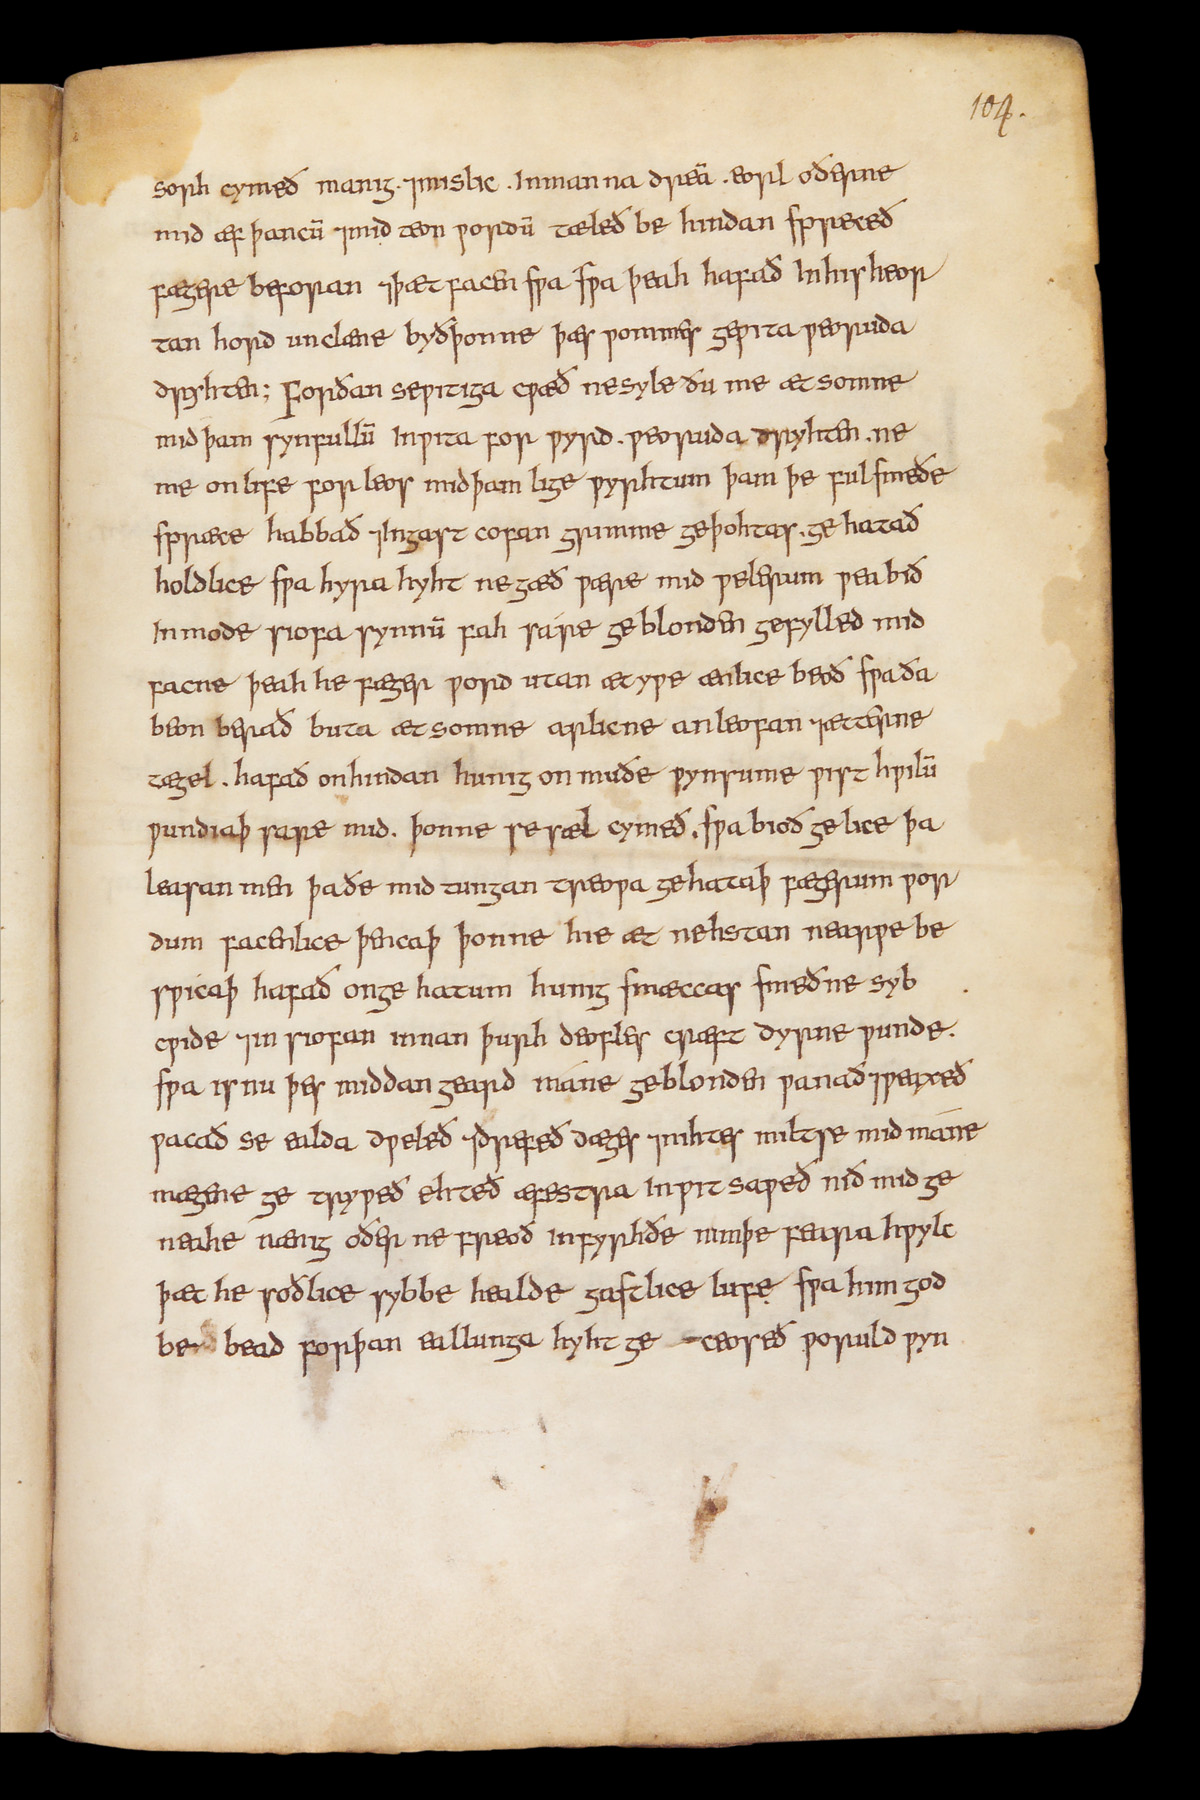 104.
sorh cymeð manig ⁊ mislic . In manna dreā . eorl oðerne
mid æf þancū ⁊ mid teon ƿordū tæleð be hindan spreceð
fægere beforan ⁊ þæt facen sƿa sƿa þeah hafað In his heor
tan hord unclæne byð þonne þæs ƿommes geƿita ƿeoruda
dryhten; Forðan se ƿitiga cƿæð ne syle ðu me æt somne
mid þam synfullū In ƿita for ƿyrd . ƿeoruda dryhten . ne
me on life for leos mid þam lige ƿyrhtum þam þe ful smeðe
spræce habbað ⁊ In gast cofan grimme geþohtas . ge hatað
holdlice sƿa hyra hyht ne gæð ƿære mid ƿelerum ƿea bið
In mode siofa synnū fah sáre geblonden gefylled mid
facne þeah he fæger ƿord utan ætyƿe ænlice beoð sƿa ða
beon berað buta æt somne arlicne anleofan ⁊ ætterne
tægel . hafað on hindan hunig on muðe ƿynsume ƿist hƿilū
ƿundiaþ sare mid . þonne se sæl cymeð . sƿa bioð gelice þa
leasan men þa ðe mid tungan treoƿa gehataþ fægerum ƿor
dum facenlice þencaþ þonne hie æt nehstan nearƿe be
sƿicaþ hafað on ge hatum hunig smæccas smeðne syb
cƿide ⁊ in siofan innan þurh deofles cræft dyrne ƿunde .
sƿa is nu þes middan geard máne geblonden ƿanað ⁊ ƿeaxeð
ƿacað se ealda dƿeleð ⁊ drefeð dæges ⁊ nihtes miltse mid máne
mægene ge tryƿeð ehteð æfestra In ƿit saƿeð nið mid ge
neahe nænig oðer ne freoð in fyrhðe nimþe feara hƿylc
þæt he soðlice sybbe healde gastlice lufe sƿa him god
be bead forþan eallunga hyht ge ceoseð ƿoruld ƿyn